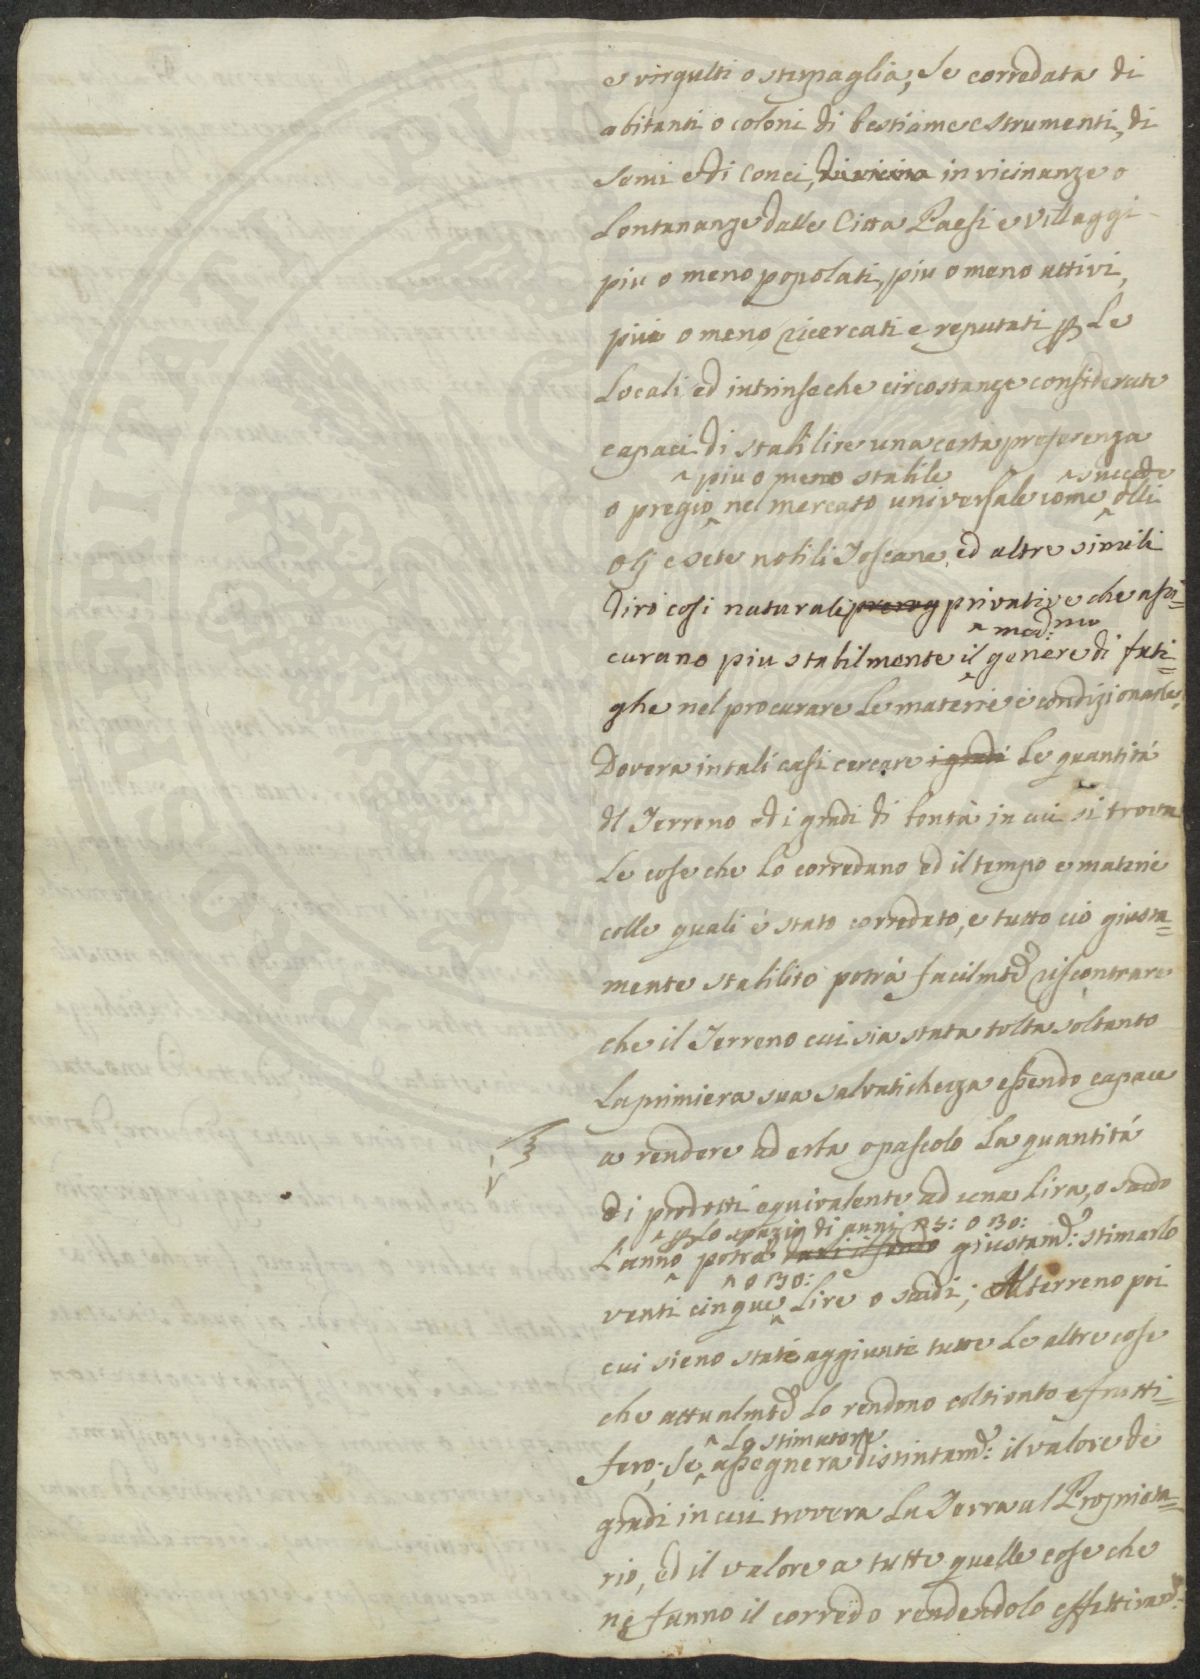 e virgulti o stipaglia, se corredata di
abitanti o coloni di bestiame e strumenti, di
semi e di conci, di vicina in vicinanze o
Lontananze dalle Citta Paesi e Villaggi
piu o meno popolati, piu o meno attivi,
piu o meno ricercati e reputati p Le
Locali ed intrinseche circostanze considerate
capaci di stabilire una certa preferenza
^ piu o meno stabile ^ succede
o pregio nel mercato universale come
Olj e sete nobili Toscane, ed altre simili
diro cosi naturali prerog privative che assi=
^ med.mo
curano piu stabilmente il genere di fati=
ghe nel procurare Le materie e condizionarle,
Dovera in tali casi cercare i gradi Le quantità
del Terreno ed i gradi di bontà in cui si trova
Le cose che Lo corredano ed il tempo e materie
colle quali è stato corredato, e tutto ciò giusta=
mente stabilito potrà facilmte riscontrare
che il Terreno cui sia stata tolta soltanto
La primiera sua salvatichezza essendo capace
a rendere ad erba o pascolo La quantità
di prodotti equivalente ad una Lira, o scudo
^ p Lo spazio di anni 25: o 30:
L'anno potrà giustamte: stimarlo
^ o 30:
venti cinque Lire o scudi; Al terreno poi
cui sieno state aggiunte tutte Le altre cose
che attualmte Lo rendono coltivato e frutti=
^ Lo stimatore
fero; Se assegnera distintamte: il valore de
gradi in cui trovera La Terra al Proprieta=
rio, ed il valore a tutte quelle cose che
ne fanno il corredo rendendolo effettivamte: